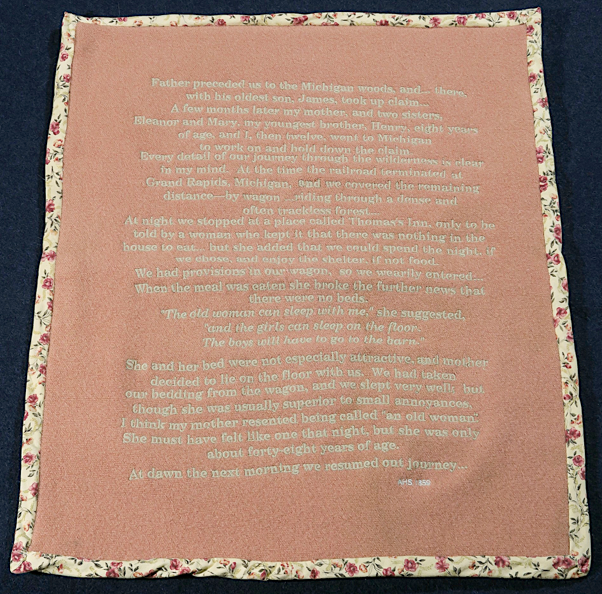 Father preceded us to the Michigan woods, and... there,
with his oldest son, James, took up claim...
A few months later my mother, and two sisters,
Eleanor and Mary, my youngest brother, Henry, eight years
of age, and I, then twelve, went to Michigan
to work on and hold down the claim.
Every detail of our journey through the wilderness is clear
in my mind. At the time the railroad terminated at
Grand Rapids, Michigan, and we covered the remaining
distance—by wagon ...riding through a dense and
often trackless forest...
At night we stopped at a place called Thomas's Inn, only to be
told by a woman who kept it that there was nothing in the
house to eat... but she added that we could spend the night, if
we chose, and enjoy the shelter, if not food.
We had provisions in our wagon, so we wearily entered...
When the meal was eaten she broke the further news that
there were no beds.
"The old woman can sleep with me," she suggested,
"and the girls can sleep on the floor.
The boys will have to go to the barn."
She and her bed were not especially attractive, and mother
decided to lie on the floor with us. We had taken
our bedding from the wagon, and we slept very well; but
though she was usually superior to small annoyances,
I think my mother resented being called "an old woman."
She must have felt like one that night, but she was only
about forty-eight years of age.
At dawn the next morning we resumed out journey...
AHS